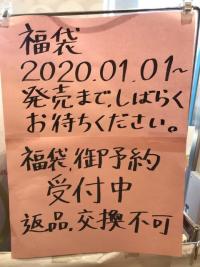 福袋
2020.01.01~
発売まで、しばらく
お待ちください。
福袋、御予約
受付中
返品、交換不可